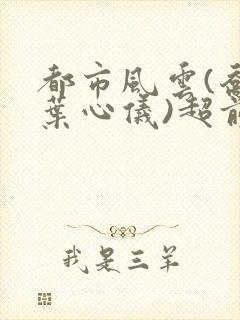 都市風雲(喬
葉心儀)超前
我是三羊